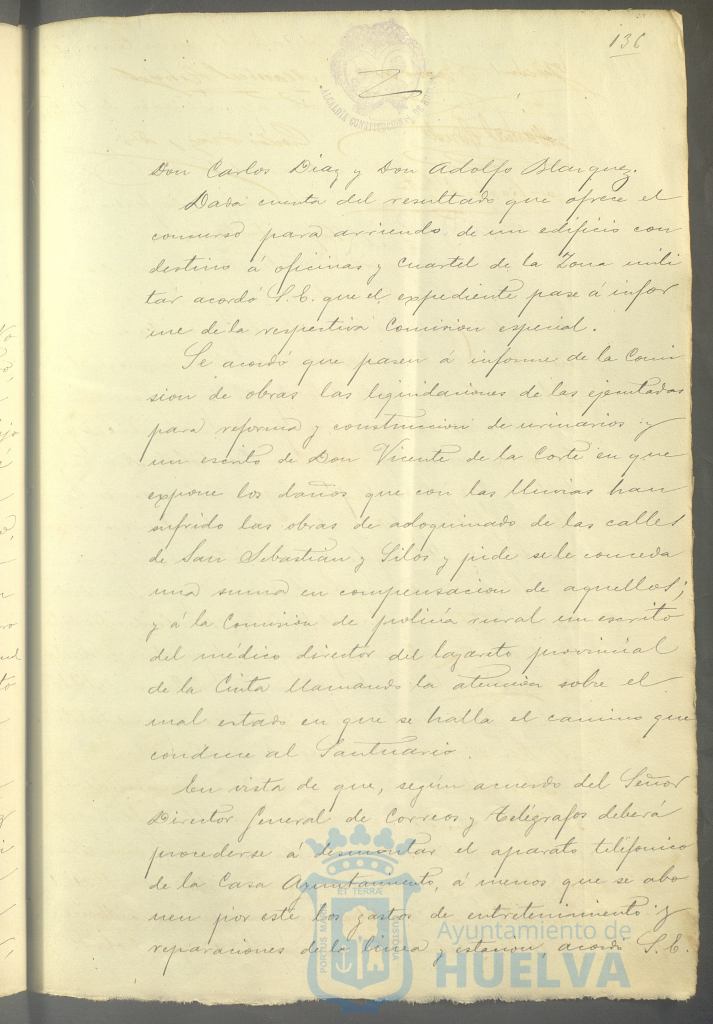 136
ALCALDÍA CONSTITUCIONAL DE
Don Carlos Diaz y Don Adolfo Blazquez.
Dada cuenta del resultado que ofrece el
concurso para arriendo de un edificio con
destino á oficinas y cuartel de la Zona mili
tar acordó S.E. que el expediente pase á infor
me de la respectiva Comision especial.
Se acordó que pasen á informe de la Comi
sion de obras las liquidaciones de las ejecutadas
para reforma y construccion de urinarios y
un escrito de Don Vicente de la Corte en que
expone los daños que con las lluvias han
sufrido las obras de adoquinado de las calles
de San Sebastian y Silos y pide se le conceda
una suma en compensacion de aquellos;
y á la Comision de policía rural un escrito
del médico director del lazareto provincial
de la Cinta llamando la atencion sobre el
mal estado en que se halla el camino que
conduce al Santuario.
En vista de que, según acuerdo del Señor
Director General de Correos y Telégrafos deberá
procederse á desmontar el aparato telefónico
de la Casa Ayuntamiento, á menos que se abo
nen por este los gastos de entretenimiento y
reparaciones de la linea y estacion, acordó S.E.
ET TERRÆ
PORTUS MARIS
CUSTODIA
Ayuntamiento de
HUELVA